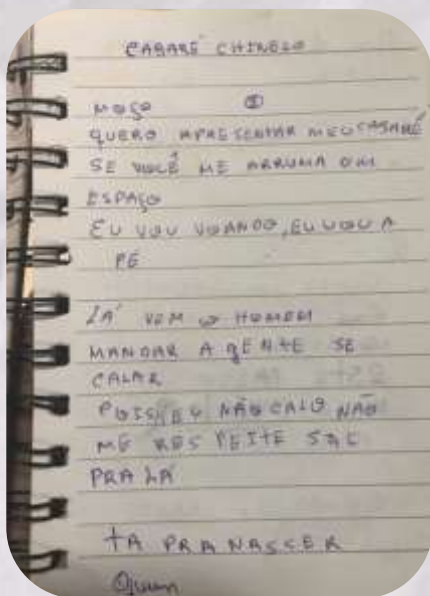 CABARÉ CHINELO
MOÇO ①
QUERO APRESENTAR MEU CABARÉ
SE VOCÊ ME ARRUMA UM
ESPAÇO
EU VOU VOANDO, EU VOU A
PÉ
LÁ VEM O HOMEM
MANDAR A GENTE SE
CALAR
POIS EU NÃO CALO NÃO
ME RESPEITE SAI
PRA LÁ
TA PRA NASCER
Quem